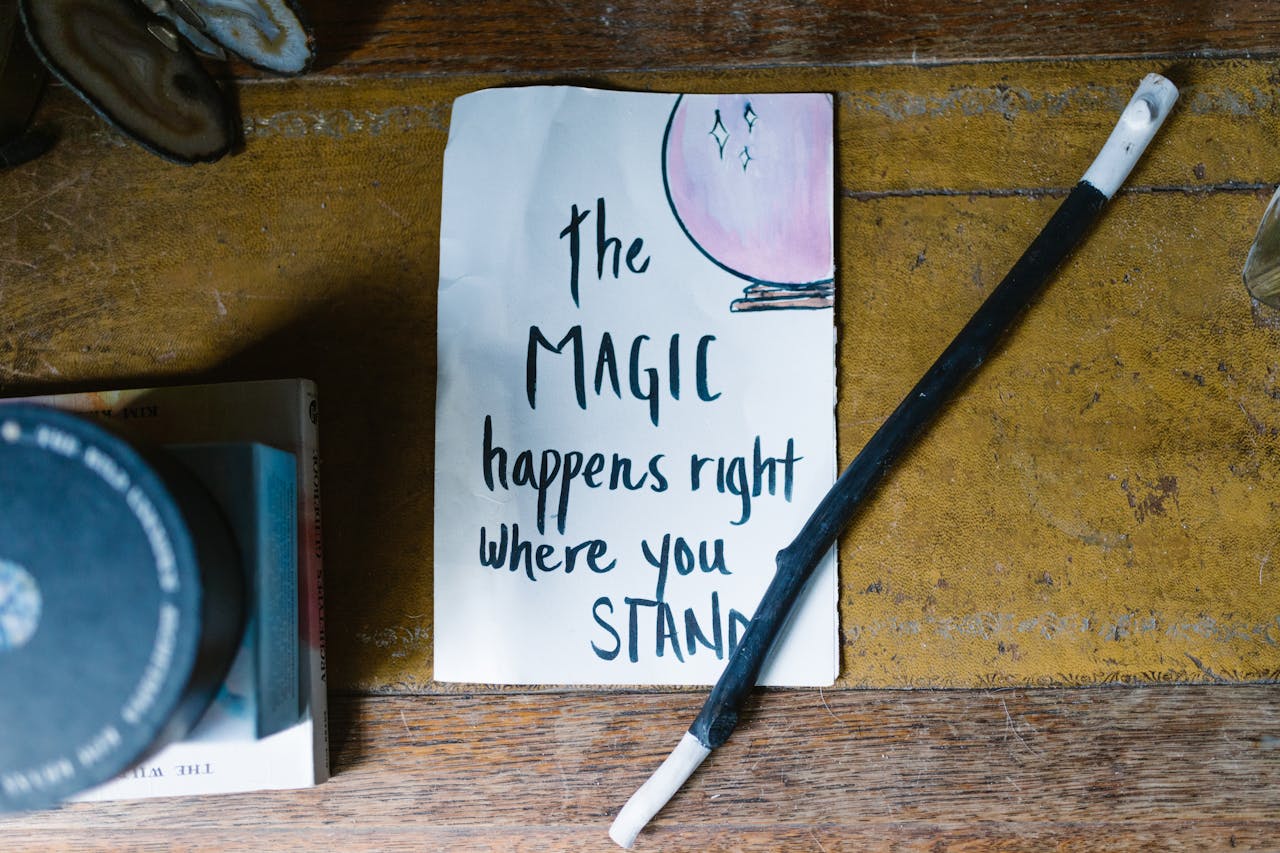 the
MAGIC
happens right
where you
STAND
KIM
ARCHETYPES GUIDEBOOK
THE